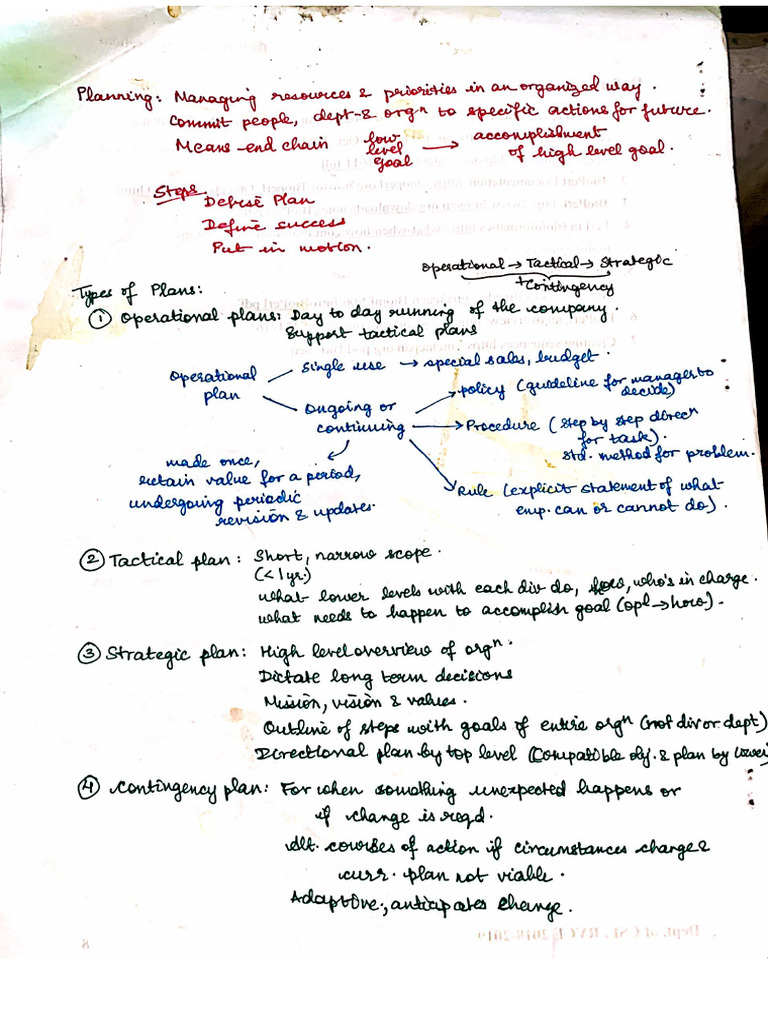 Planning: Managing resources & priorities in an organized way.
Commit people, dept & orgⁿ to specific actions for future.
Means-end chain low level goal → accomplishment of high level goal.
Steps
Devise Plan
Define success
Put in motion.
Operational → Tactical → Strategic
+ Contingency
Types of Plans:
① Operational plans: Day to day running of the company.
Support tactical plans
Operational plan
Single use → special sales, budget.
Ongoing or continuing
→ policy (guideline for manager to decide)
→ Procedure (step by step direcⁿ for task).
std. method for problem.
→ Rule (explicit statement of what emp. can or cannot do).
made once,
retain value for a period,
undergoing periodic
revision & updates.
② Tactical plan: Short, narrow scope.
(<1yr.)
what lower levels with each div do, how, who's in charge.
what needs to happen to accomplish goal (opl → how).
③ Strategic plan: High level overview of orgⁿ.
Dictate long term decisions
Mission, vision & values.
Outline of steps with goals of entire orgⁿ (not div or dept)
Directional plan by top level (Compatible obj. & plan by lower)
④ Contingency plan: For when something unexpected happens or
if change is reqd.
Alt. courses of action if circumstances change &
curr. plan not viable.
Adaptive, anticipates change.
8
Dept. of CSE, RVCE 2018-2019